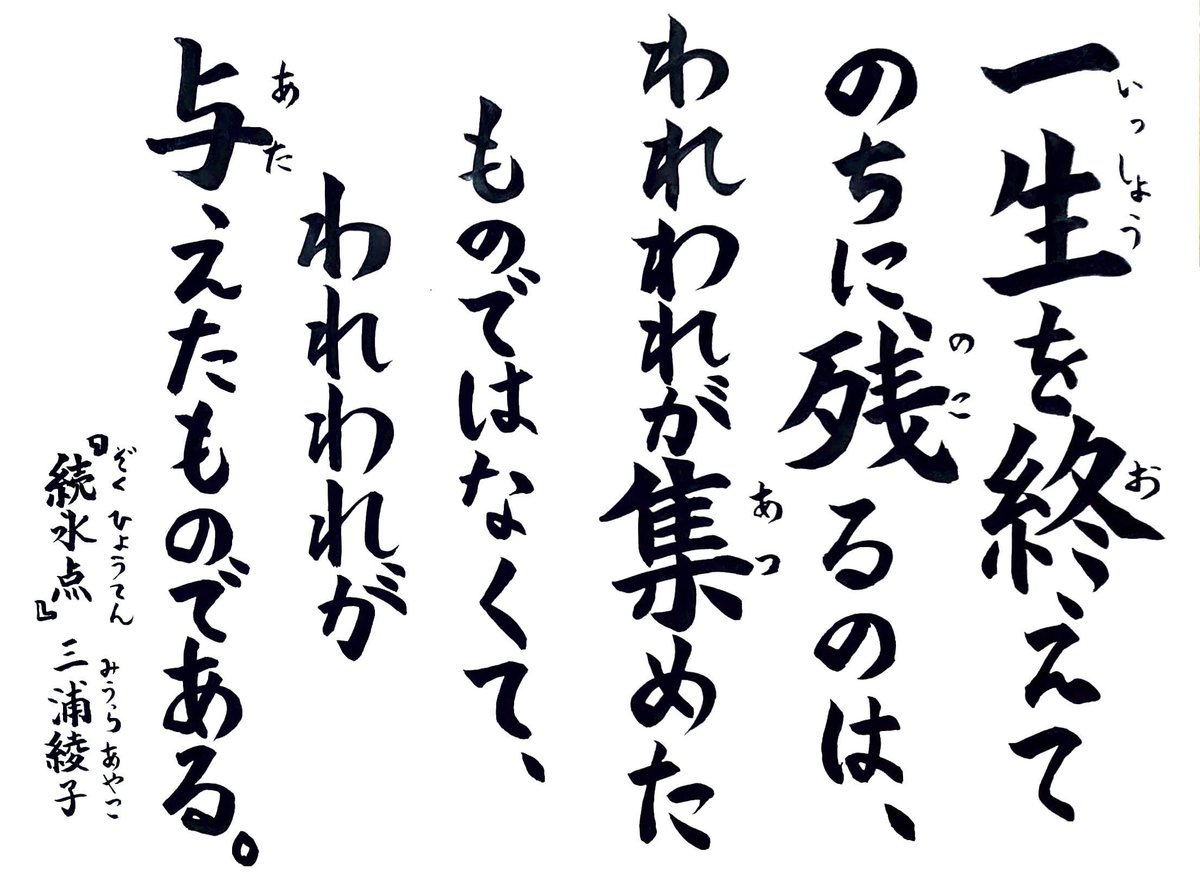 一生を終えて
いっしょう
お
のちに、残るのは、
のこ
われわれが集めた
あつ
ものではなくて、
われわれが
与えたものである。
あた
『続氷点』三浦綾子
ぞくひょうてん みうらあやこ